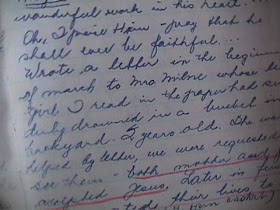 wonderful work in his heart.
Oh, I praise Him - pray that he
shall ever be faithful...
Wrote a letter in the beginn
of march to Mrs Milne whose le
girl I read in the paper had
drowned in a bucket
backyard. 2 years old. She wa
helped by letter, we were requeste
see them - both mother and
accepted Jesus, Later in
their lives to